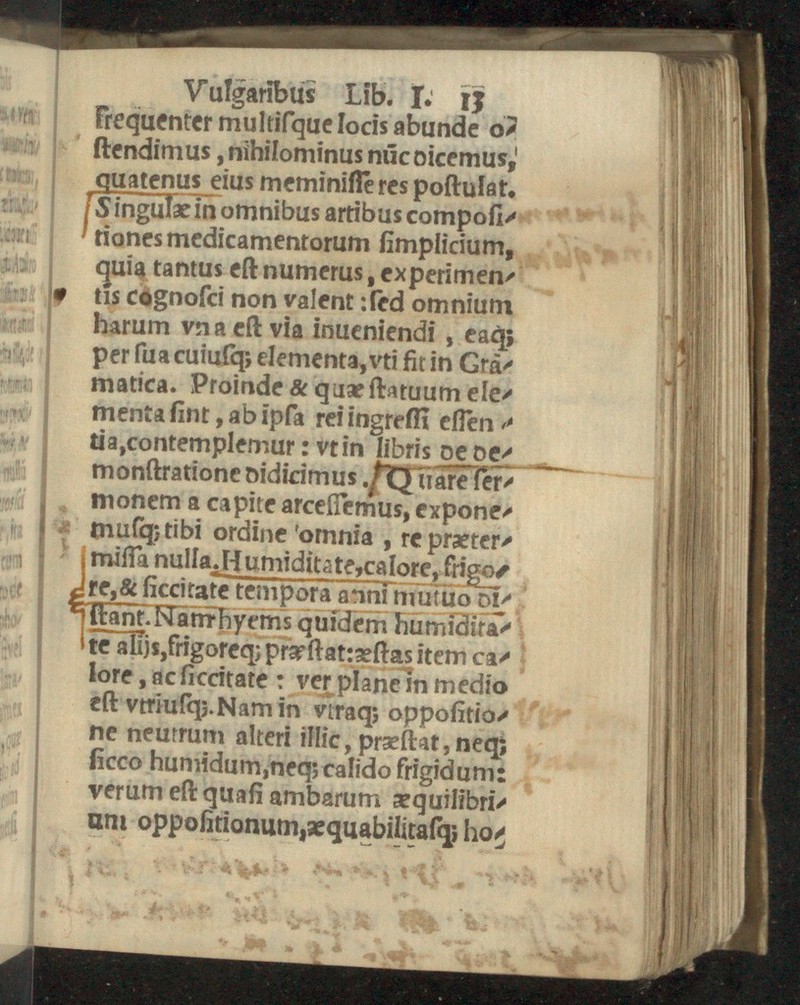 Vulgaribus Lib. I. 13
frequenter multiſque locis abunde oꝛ
ſtendimus, nihilominus nũc dicemus,
quatenus eius meminiſſe res poſtulat.
Singulæ in omnibus artibus compoſi⸗
tiones medicamentorum ſimplicium,
quia tantus eſt numerus, experimen⸗
tis cognoſci non valent: ſed omnium
harum vna eſt via inueniendi, eaq;
per ſua cuiuſq; elementa, vti fit in Grã⸗
matica. Proinde & quæ ſtatuum ele⸗
menta ſint, ab ipſa rei ingreſſi eſſen⸗
tia, contemplemur: vt in libris de de⸗
monſtratione didicimus. Quare ſer⸗
monem a capite arceſſemus, expone⸗
muſq; tibi ordine omnia, re præter⸗
miſſa nulla. Humiditate, calore, frigo⸗
re, & ſiccitate tempora anni mutuo di⸗
ſtant. Nam hyems quidem humidita⸗
te alijs, frigoreq; præſtat: æſtas item ca⸗
lore, ac ſiccitate: ver plane in medio
eſt vtriuſq;. Nam in vtraq; oppoſitio⸗
ne neutrum alteri illic, præſtat, neq;
ſicco humidum, neq; calido frigidum:
verum eſt quaſi ambarum æquilibri⸗
um oppoſitionum, æquabilitaſq; ho⸗